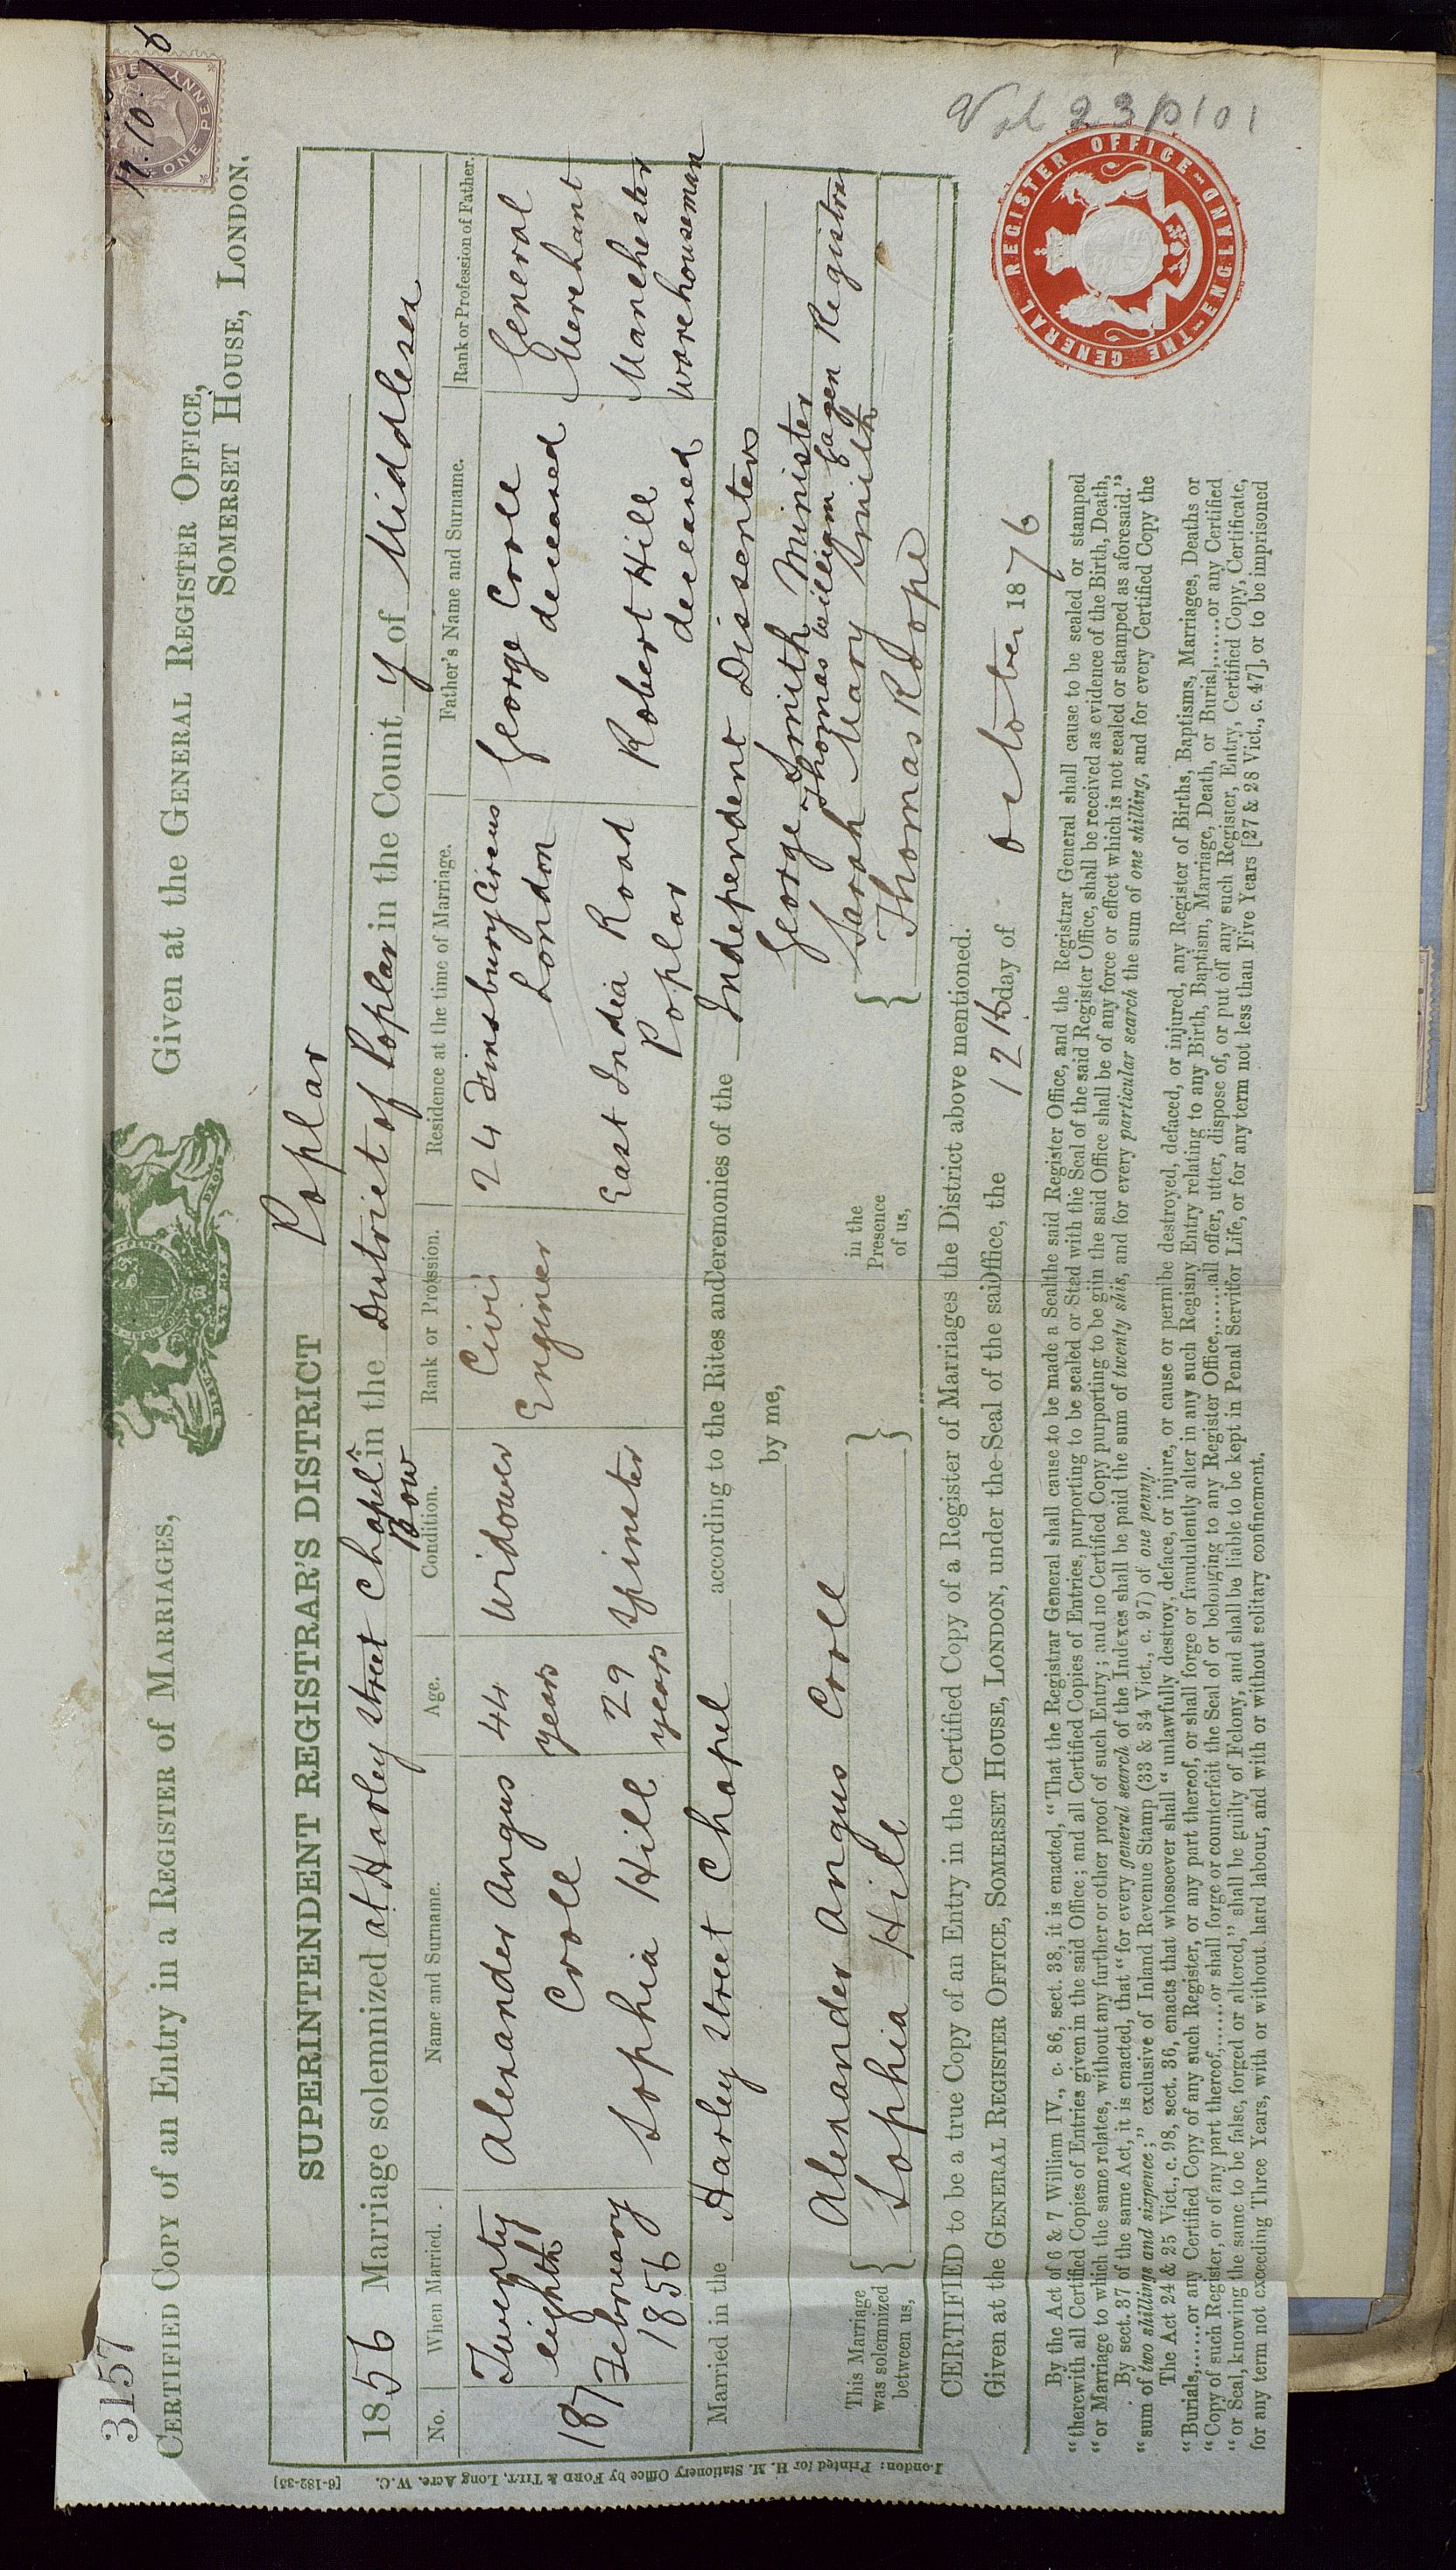 3157
CERTIFIED COPY of an Entry in a REGISTER of MARRIAGES,
Given at the GENERAL REGISTER OFFICE,
SOMERSET HOUSE, LONDON.
ONE PENNY
SUPERINTENDENT REGISTRAR'S DISTRICT Poplar
1856 Marriage solemnized at Harley Street Chapel in the District of Poplar in the County of Middlesex
Bow
No.
When Married.
Name and Surname.
Age.
Condition.
Rank or Profession.
Residence at the time of Marriage.
Father's Name and Surname.
Rank or Profession of Father.
187
Twenty
eighth
February
1856
Alexander Angus
Croll
44
years
Widower
Civil
Engineer
24 Finsbury Circus
London
George Croll
deceased
General
Merchant
Sophia Hill
29
years
Spinster
East India Road
Poplar
Robert Hill
deceased
Manchester
Warehouseman
Married in the Harley Street Chapel according to the Rites and Ceremonies of the Independent Dissenters
by me,
George Smith Minister
Thomas William Gagen Registrar
This Marriage
was solemnized
between us,
Alexander Angus Croll
Sophia Hill
in the
Presence
of us,
Sarah Mary Smith
Thomas R Pope
CERTIFIED to be a true Copy of an Entry in the Certified Copy of a Register of Marriages the District above mentioned.
Given at the GENERAL REGISTER OFFICE, SOMERSET HOUSE, LONDON, under the Seal of the said Office, the 12th day of October 1876
By the Act of 6 & 7 William IV., c. 86, sect. 38, it is enacted, "That the Registrar General shall cause to be made a Seal the said Register Office, and the Registrar General shall cause to be sealed or stamped
"therewith all Certified Copies of Entries given in the said Office; and all Certified Copies of Entries, purporting to be sealed or Sted with the Seal of the said Register Office, shall be received as evidence of the Birth, Death,
"or Marriage to which the same relates, without any further or other proof of such Entry; and no Certified Copy purporting to be giin the said Office shall be of any force or effect which is not sealed or stamped as aforesaid."
By sect. 37 of the same Act, it is enacted, that "for every general search of the Indexes shall be paid the sum of twenty shis, and for every particular search the sum of one shilling, and for every Certified Copy the
"sum of two shillings and sixpence;" exclusive of Inland Revenue Stamp (33 & 34 Vict., c. 97) of one penny.
The Act 24 & 25 Vict., c. 98, sect. 36, enacts that whosoever shall "unlawfully destroy, deface, or injure, or cause or permibe destroyed, defaced, or injured, any Register of Births, Baptisms, Marriages, Deaths or
"Burials,......or any Certified Copy of any such Register, or any part thereof, or shall forge or fraudulently alter in any such Regisny Entry relating to any Birth, Baptism, Marriage, Death, or Burial,......or any Certified
"Copy of such Register, or of any part thereof,......or shall forge or counterfeit the Seal of or belonging to any Register Office,......all offer, utter, dispose of, or put off any such Register, Entry, Certified Copy, Certificate,
"or Seal, knowing the same to be false, forged or altered," shall be guilty of Felony, and shall be liable to be kept in Penal Servifor Life, or for any term not less than Five Years [27 & 28 Vict., c. 47], or to be imprisoned
for any term not exceeding Three Years, with or without hard labour, and with or without solitary confinement.
THE GENERAL REGISTER OFFICE ENGLAND
Vol 23 p101
London: Printed for H. M. Stationery Office by FORD & TILT, Long Acre, W.C. [6-182-35]